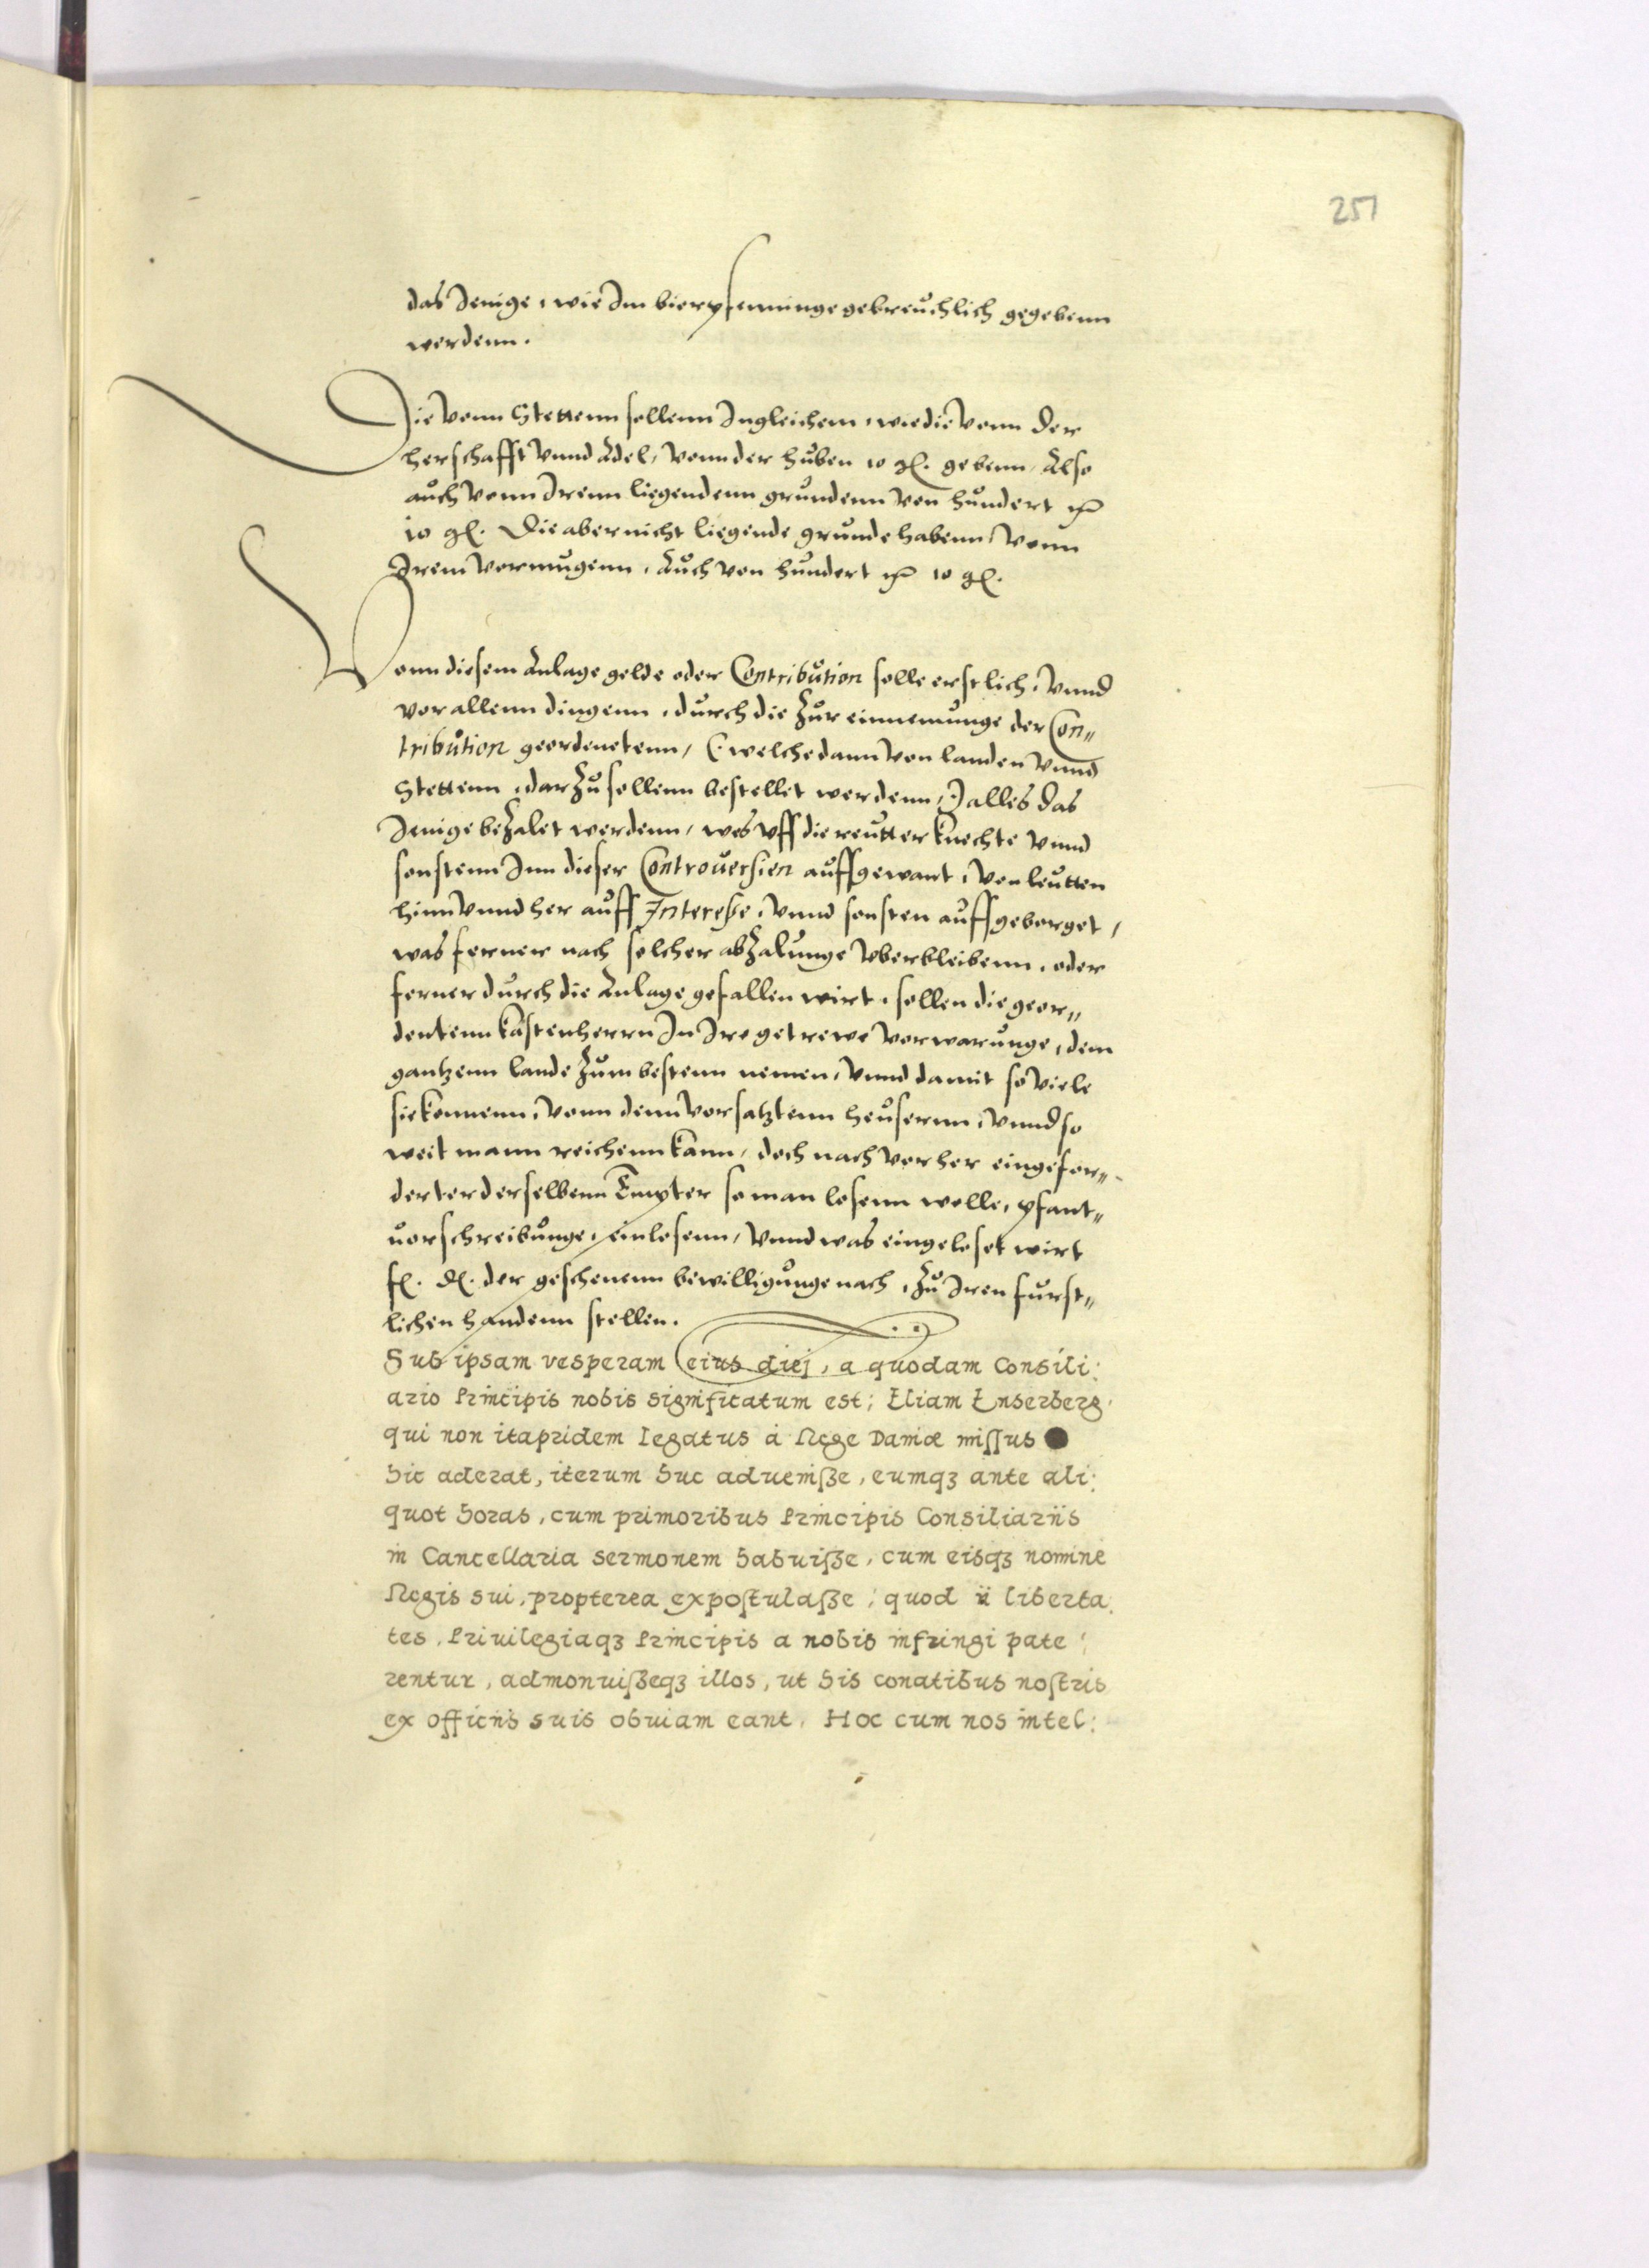 251
das Jenige, wie Im bierpfenninge gebreuchlich gegebenn
werdenn.
Die vonn Stettenn sollenn Ingleichem, wie die vonn der
herschafft vnnd Adel, vonn der huben 10 gl. gebenn, Also
auch vonn Irenn liegendenn grundenn von hundert mk
10 gl. Die aber nicht liegende grunde habenn, vonn
Irem vermugenn, Auch von hundert mk 10 gl.
Vonn diesem Anlage gelde oder Contribution solle erstlich, vnnd
vor allenn dingenn, durch die zur einnemunge der Con„
tribution geordenetenn, (: welche dann von landen vnnd
Stettenn, darzu sollenn bestellet werdenn :) alles das
Jenige bezalet werdenn, wes vff die reutter knechte vnnd
sonstenn Inn dieser Controuersien auffgewant, von leutten
hinn vnnd her auff Interesse, vnnd sonsten auffgeborget,
was ferner nach solcher abzalunge vberbleibenn, oder
ferner durch die Anlage gefallen wirt, sollen die geor„
dentenn kastenherrn In Ire getrewe vorwarunge, dem
gantzenn lande zum bestenn nemen, vnnd damit so viele
sie konnenn, vonn denn vorsatztenn heusernn, vnnd so
weit mann reichenn kann, doch nach vorher eingefor„
derter derselbenn Empter so man losenn wolle, pfant„
uorschreibunge, einlosenn, vnnd was eingeloset wirt
fl. dl. der geschenenn bewilligunge nach, zu Iren furst„
lichen handenn stellen.
Sub ipsam vesperam eius diej, a quodam Consili:
ario Principis nobis significatum est; Eliam Enserberg
qui non itapridem legatus à Rege Daniæ missus
hic aderat, iterum huc aduenisse, eumqꝫ ante ali:
quot horas, cum primoribus Principis Consiliariis
in Cancellaria sermonem habuisse, cum eisqꝫ nomine
Regis sui, propterea expostulasse; quod ii liberta:
tes, Priuilegiaqꝫ Principis a nobis infringi pate:
rentur, admonuisseqꝫ illos, ut his conatibus nostris
ex officiis suis obuiam eant. Hoc cum nos intel: